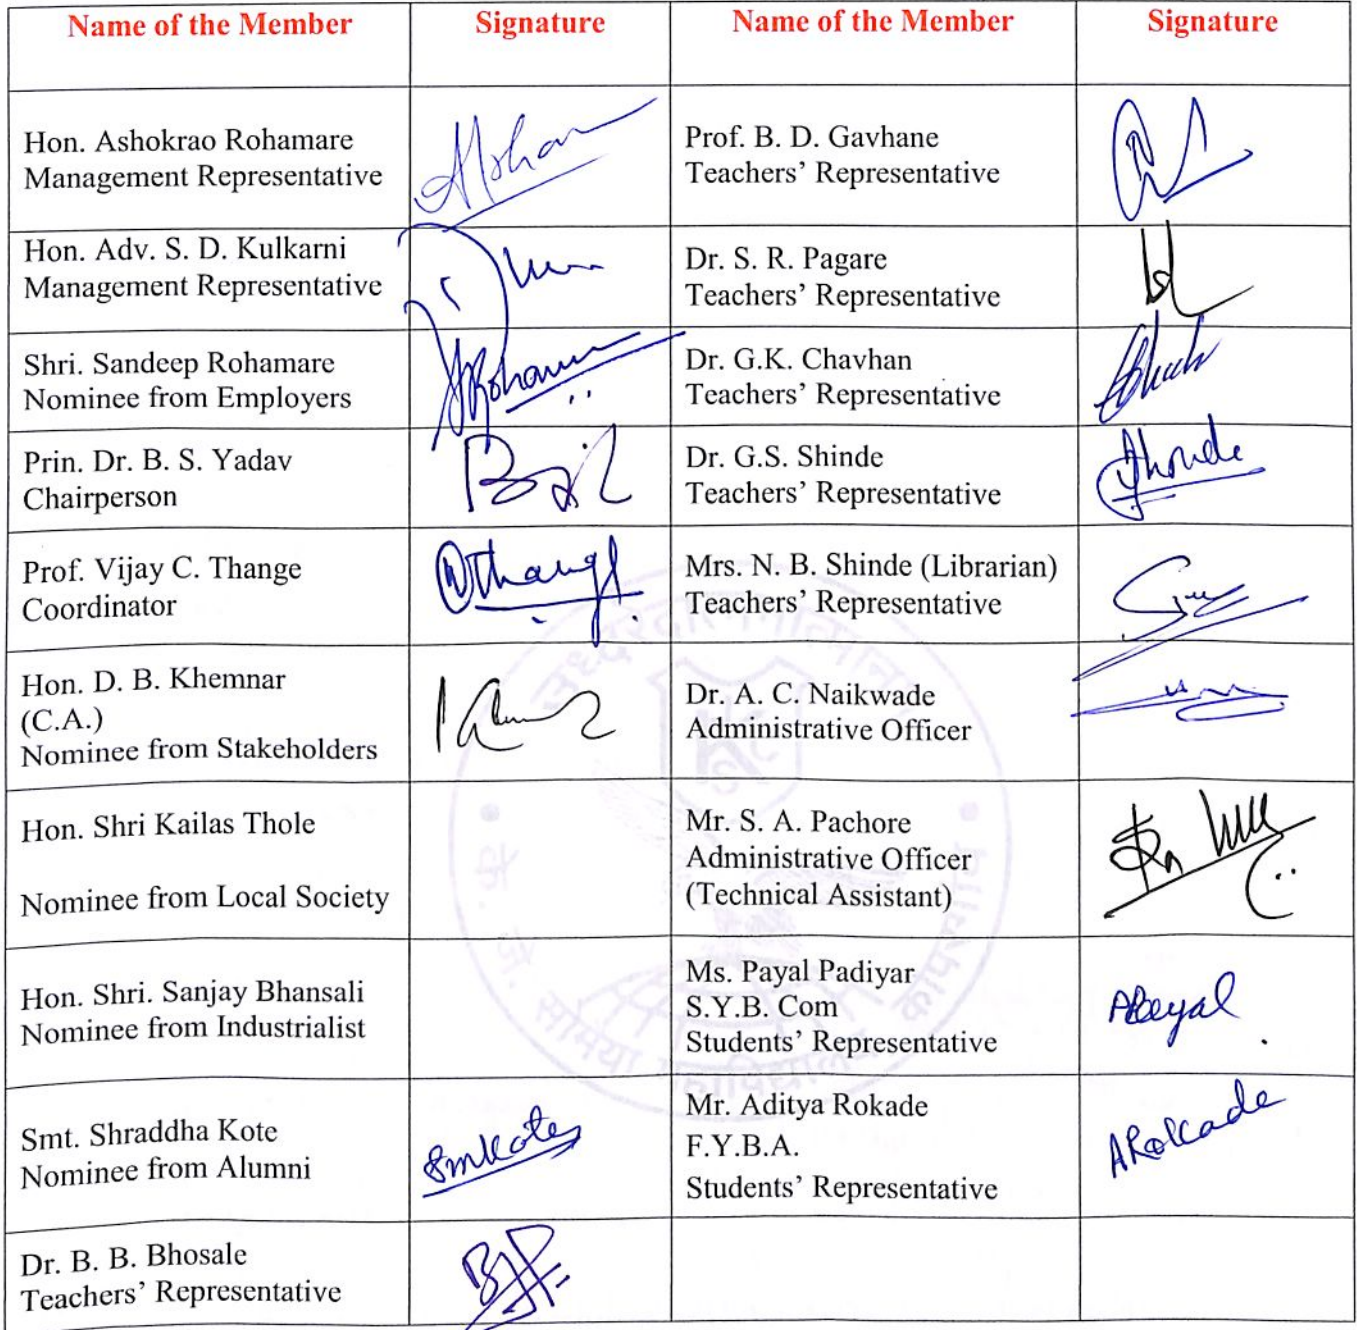 Name of the Member Signature Name of the Member Signature
Hon. Ashokrao Rohamare
Management Representative
Prof. B. D. Gavhane
Teachers' Representative
Hon. Adv. S. D. Kulkarni
Management Representative
Dr. S. R. Pagare
Teachers' Representative
Shri. Sandeep Rohamare
Nominee from Employers
Dr. G.K. Chavhan
Teachers' Representative
Prin. Dr. B. S. Yadav
Chairperson
Dr. G.S. Shinde
Teachers' Representative
Prof. Vijay C. Thange
Coordinator
Mrs. N. B. Shinde (Librarian)
Teachers' Representative
Hon. D. B. Khemnar
(C.A.)
Nominee from Stakeholders
Dr. A. C. Naikwade
Administrative Officer
Hon. Shri Kailas Thole
Nominee from Local Society
Mr. S. A. Pachore
Administrative Officer
(Technical Assistant)
Hon. Shri. Sanjay Bhansali
Nominee from Industrialist
Ms. Payal Padiyar
S.Y.B. Com
Students' Representative
Smt. Shraddha Kote
Nominee from Alumni
Smkote
Mr. Aditya Rokade
F.Y.B.A.
Students' Representative
ARokade
Dr. B. B. Bhosale
Teachers' Representative